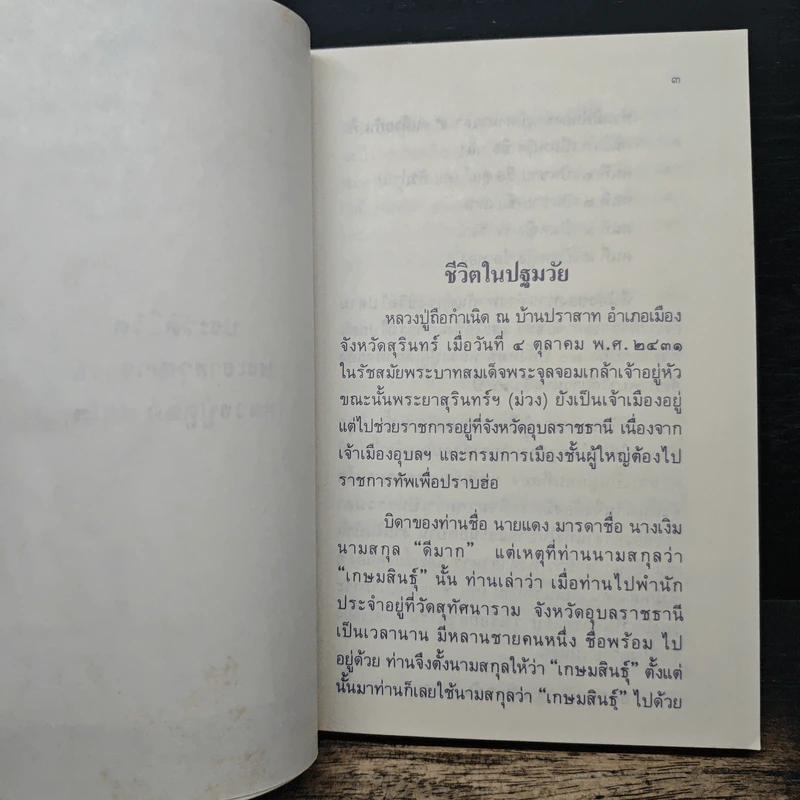 ๓
ชีวิตในปฐมวัย
หลวงปู่ถือกำเนิด ณ บ้านปราสาท อำเภอเมือง
จังหวัดสุรินทร์ เมื่อวันที่ ๔ ตุลาคม พ.ศ. ๒๔๓๑
ในรัชสมัยพระบาทสมเด็จพระจุลจอมเกล้าเจ้าอยู่หัว
ขณะนั้นพระยาสุรินทร์ฯ (ม่วง) ยังเป็นเจ้าเมืองอยู่
แต่ไปช่วยราชการอยู่ที่จังหวัดอุบลราชธานี เนื่องจาก
เจ้าเมืองอุบลฯ และกรมการเมืองชั้นผู้ใหญ่ต้องไป
ราชการทัพเพื่อปราบฮ่อ
บิดาของท่านชื่อ นายแดง มารดาชื่อ นางเงิม
นามสกุล “ดีมาก” แต่เหตุที่ท่านนามสกุลว่า
“เกษมสินธุ์” นั้น ท่านเล่าว่า เมื่อท่านไปพำนัก
ประจำอยู่ที่วัดสุทัศนาราม จังหวัดอุบลราชธานี
เป็นเวลานาน มีหลานชายคนหนึ่ง ชื่อพร้อม ไป
อยู่ด้วย ท่านจึงตั้งนามสกุลให้ว่า “เกษมสินธุ์” ตั้งแต่
นั้นมาท่านก็เลยใช้นามสกุลว่า “เกษมสินธุ์” ไปด้วย